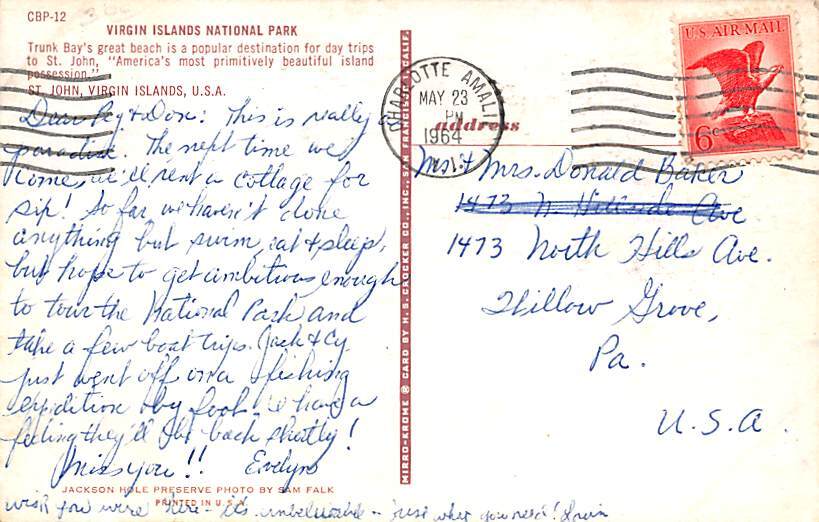 CBP-12
VIRGIN ISLANDS NATIONAL PARK
Trunk Bay's great beach is a popular destination for day trips
to St. John, "America's most primitively beautiful island
possession."
ST. JOHN, VIRGIN ISLANDS, U.S.A.
Dear Peg & Don: This is really a
paradise. The next time we
come, we'll rent a cottage for
six! So far, we haven't done
anything but swim, eat & sleep,
but hope to get ambitious enough
to tour the National Park and
take a few boat trips. Jack & Cy
just went off on a fishing
expedition - by foot! I have a
feeling they'll be back shortly!
Miss you!! Evelyn
JACKSON HOLE PRESERVE PHOTO BY SAM FALK
PRINTED IN U.S.A.
wish you were here - it's unbelievable - just what you need!
MIRRO-KROME ® CARD BY H. S. CROCKER CO., INC., SAN FRANCISCO, CALIF.
CHARLOTTE AMALI
MAY 23
PM
1964
V.I.
U.S. AIR MAIL
6c
address
Mr. & Mrs. Donald Baker
1473 N. Hillside Ave
1473 North Hills Ave.
Willow Grove,
Pa.
U.S.A.